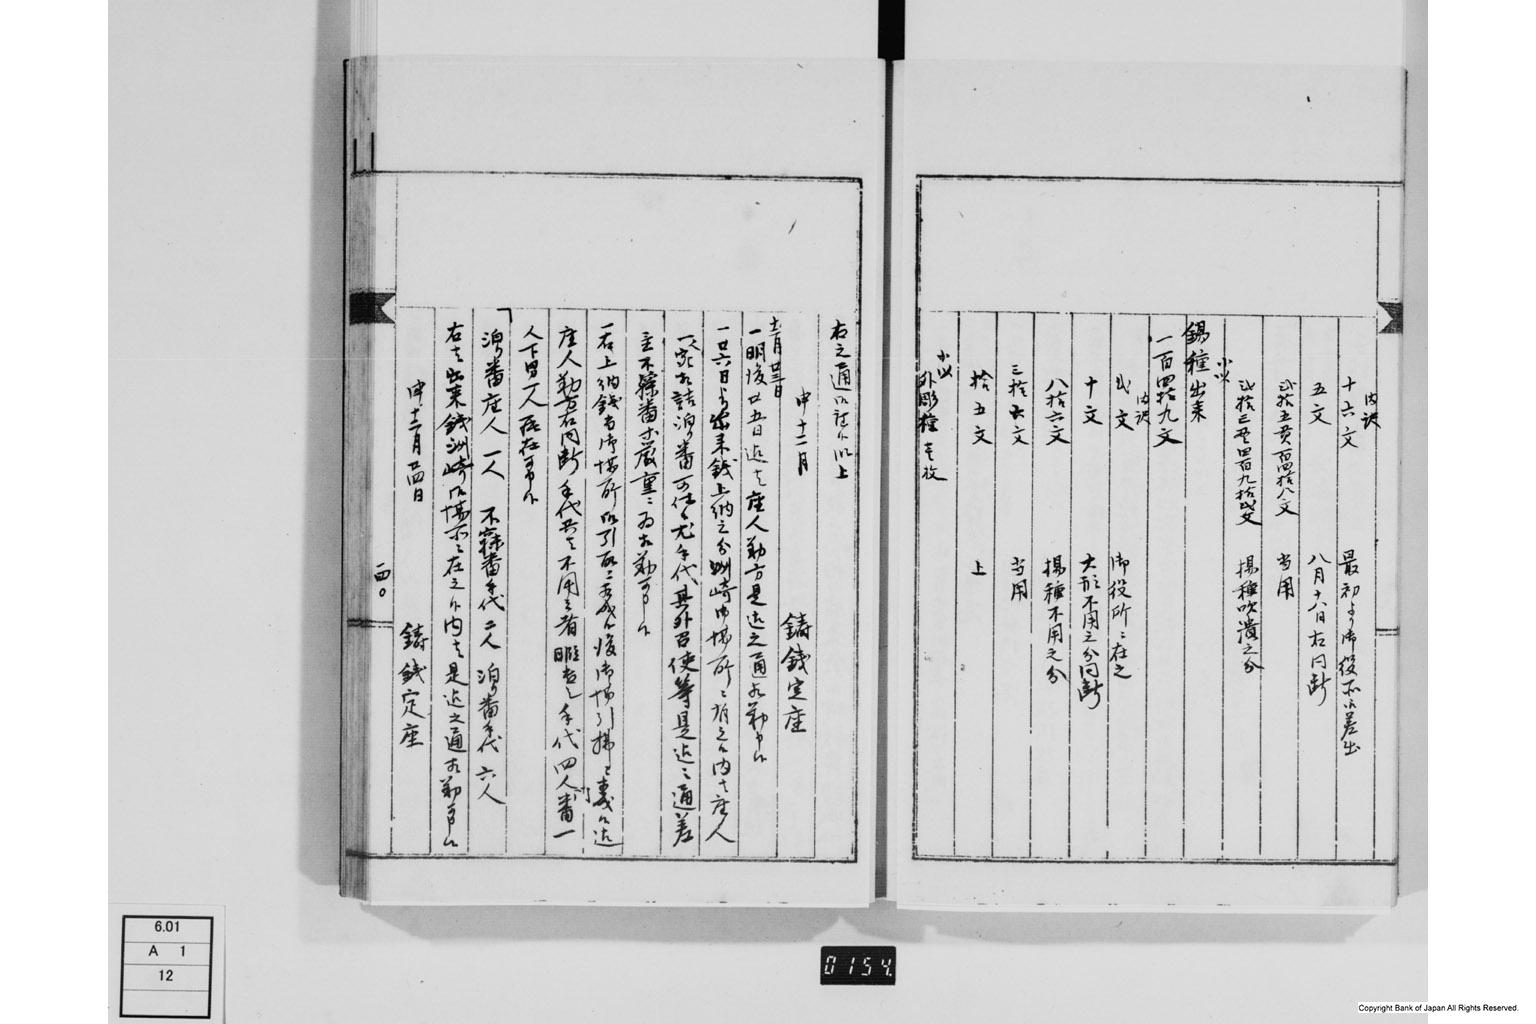 内訳
十六文 最初より御役所江差出
五文 八月十八日右同断
弐拾五貫百四拾八文 当用
弐拾三貫四百九拾弐文 楊種吹潰之分
小以
錫種出来
一百四拾九文
内訳
弐文 御役所ニ在之
十文 大形不用之分同断
八拾六文 楊種不用之分
三拾六文 当用
拾五文 上
小以
外彫種壱枚
右之通御座候以上
申十二月 鋳銭定座
十二月廿三日
一明後廿五日迄者座人勤方是迄之通相勤申候
一廿六日より出来銭上納之分洲崎御場所ニ有之候内者座人
一人宛相詰泊り番可仕尤手代其外召使等是迄之通差
置不寐番等厳重ニ為相勤可申候
一右上納銭当御場所御引取ニ相成候後御場引揚ニ相成候迄
座人勤方右同断手代共者不用之者暇出し手代四人番一
人下男一人居在可申候
泊り番座人一人 不寐番手代二人 泊番手代六人
右者出来銭洲崎御場所ニ在之候内者是迄之通相勤可申候
申十二月廿四日 鋳銭定座
一四〇
6.01
A 1
12
0154
Copyright Bank of Japan All Rights Reserved.